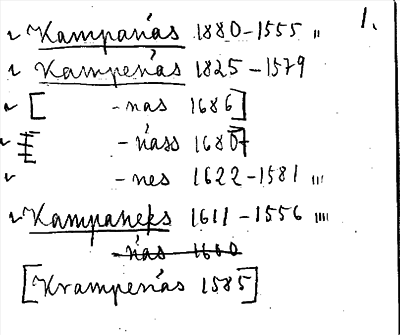 1.
Kampanás 1880-1555 "
Kampenás 1825-1579
[ -nas 1686]
[ -náss 1680]
-nes 1622-1581 '''
Kampaneks 1611-1556 ''''
-nás 1660
[Krampenás 1585]